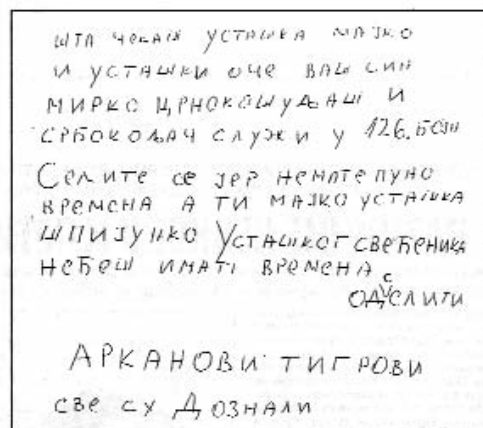 ШТА ЧЕКАШ УСТАШКА МАЈКО
И УСТАШКИ ОЧЕ ВАШ СИН
МИРКО ЦРНОКОШУЉАШ И
СРБОКОЉАЧ СЛУЖИ У 126. БОЈН
СЕЛИТЕ СЕ ЈЕР НЕМАТЕ ПУНО
ВРЕМЕНА А ТИ МАЈКО УСТАШКА
ШПИЈУНКО УСТАШКОГ СВЕЋЕНИКА
НЕЋЕШ ИМАТИ ВРЕМЕНА
ОДСЕЛИТИ
АРКАНОВИ ТИГРОВИ
СВЕ СУ ДОЗНАЛИ